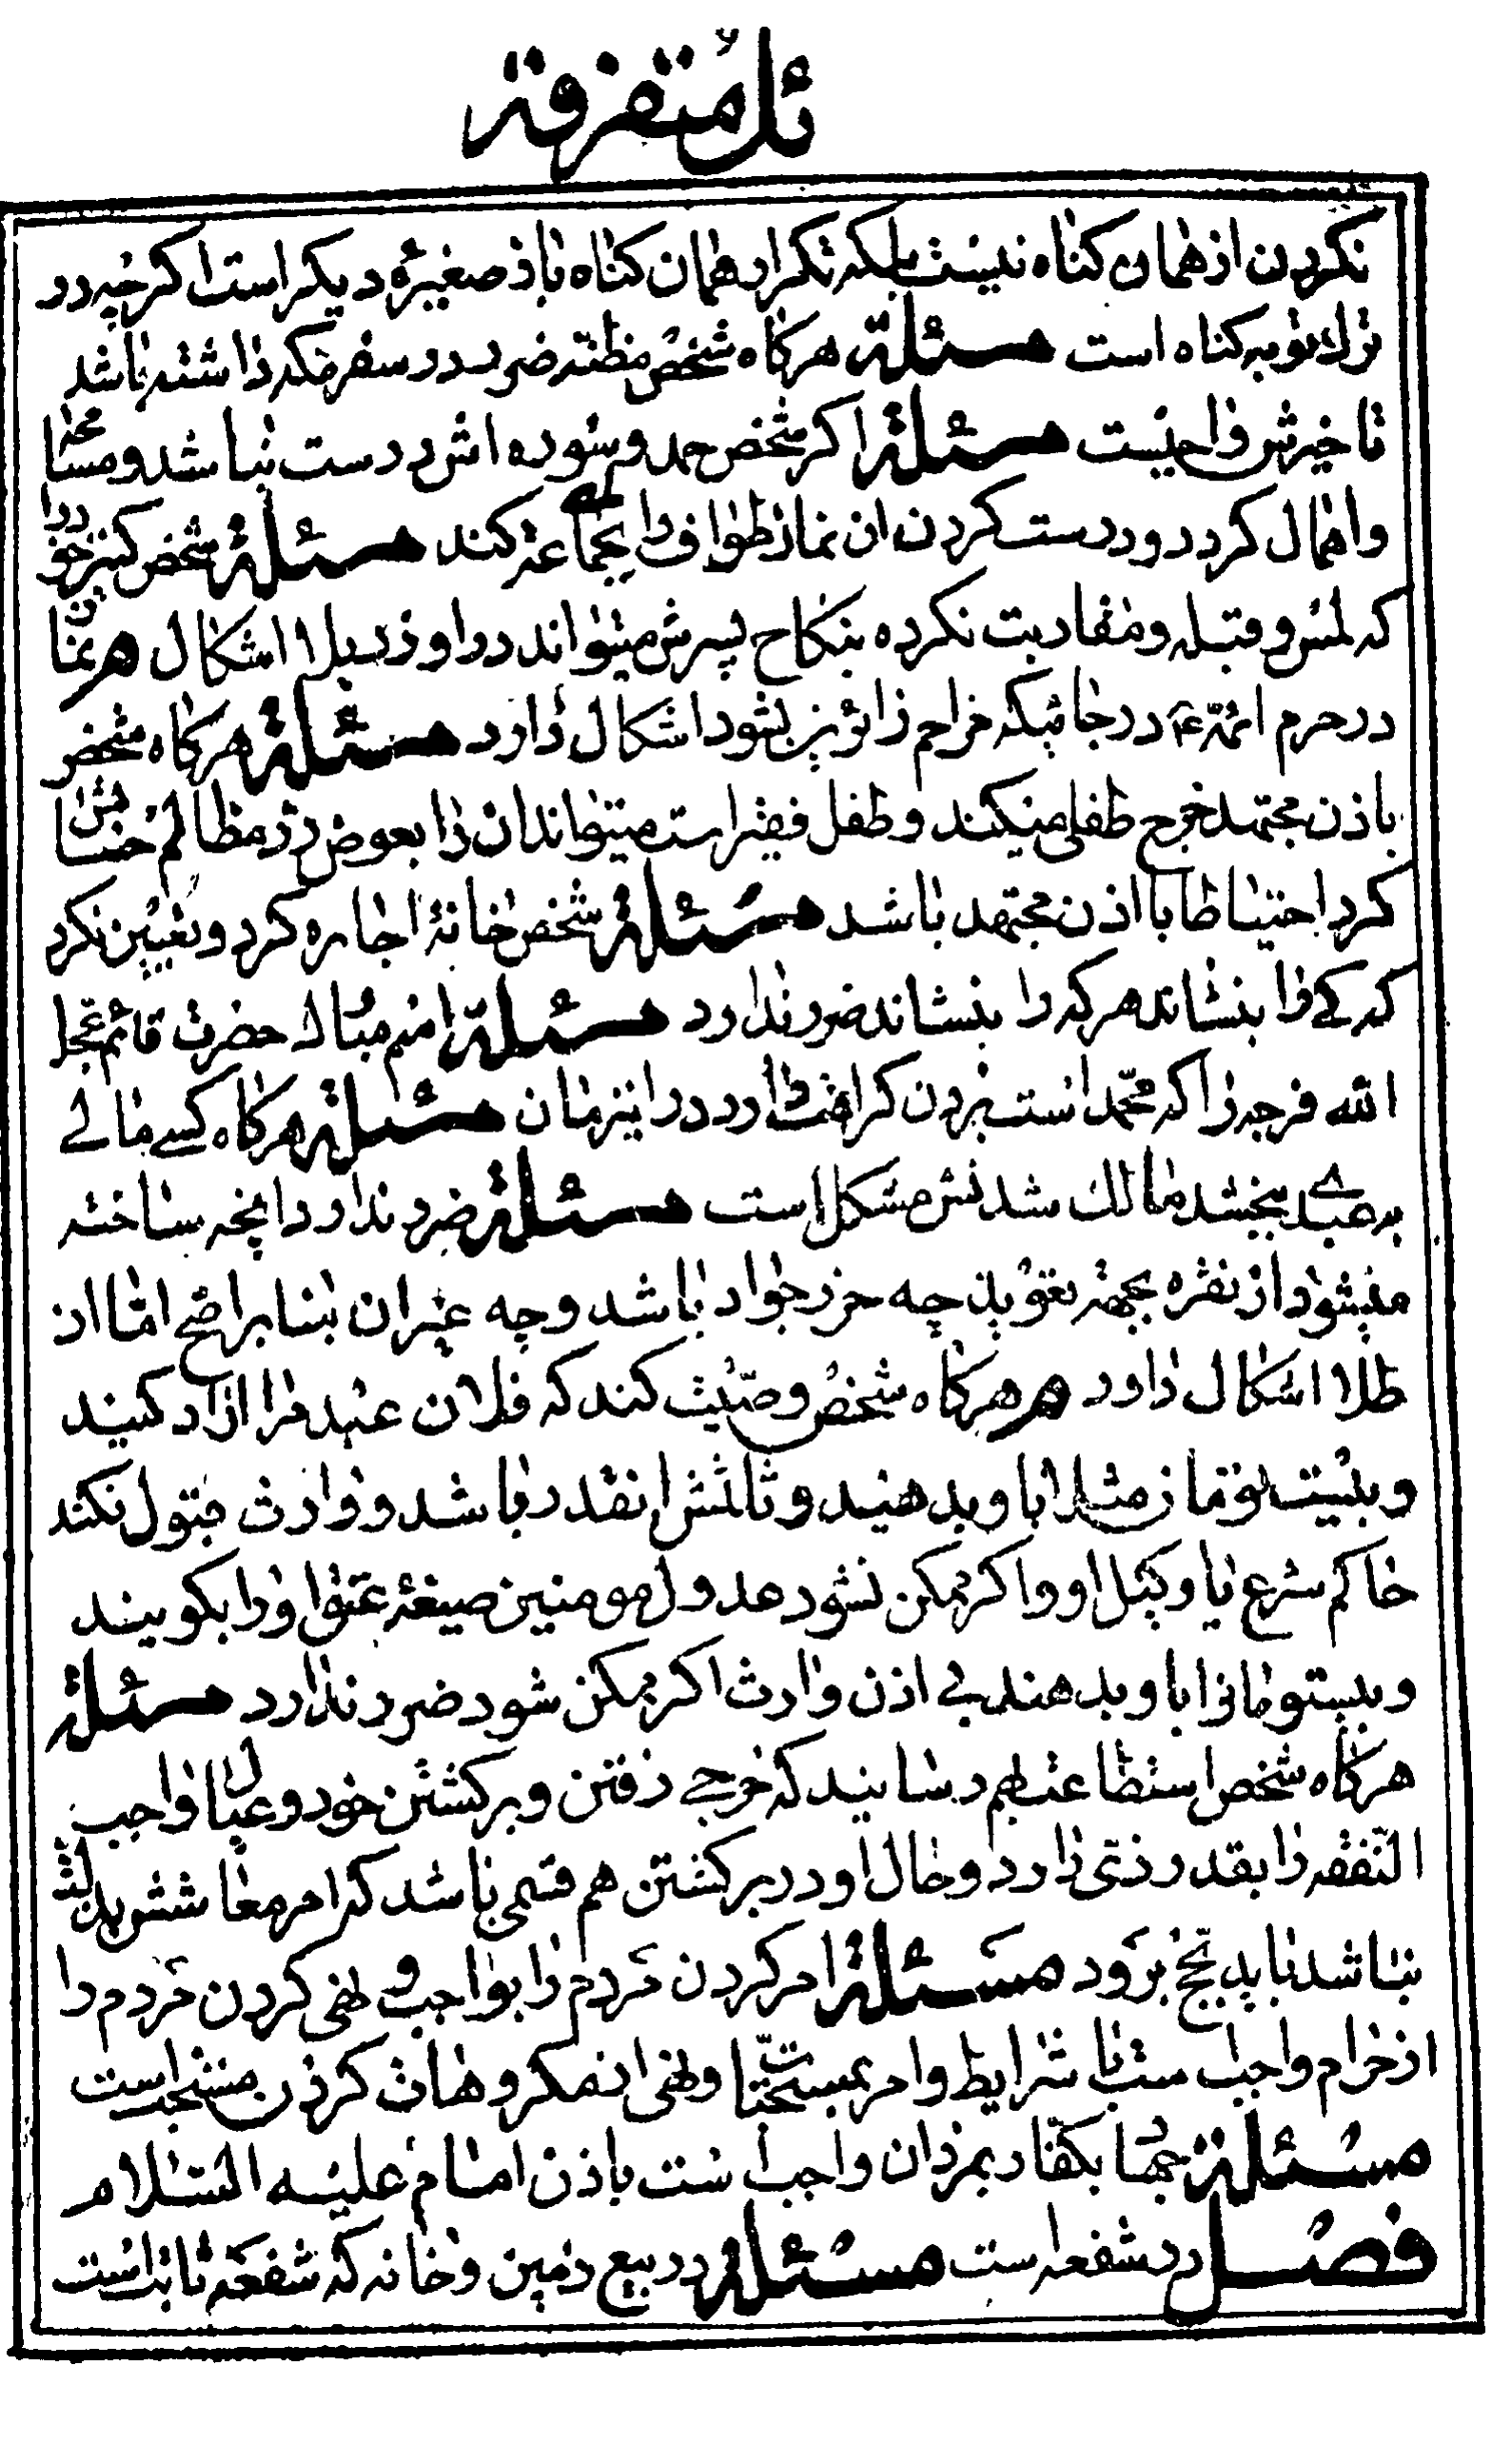 ئل متفرقة
نکردن از همان کناه نیست بلکه تکرار همان کناه باز صغیرۀ دیکر است اکرچه در
ترك توبه کناه است مسئلة هرکاه شخص مظنه ضرر در سفر مکه داشته باشد
تاخیرش واجبست مسئلة اکر شخص حمد و سوره اش درست نباشد و مسامحه
و اهمال کرد در درست کردن ان نماز طواف را بجماعة کند مسئلة شخص کنیز خود را
که لمس و قبله و مقاربت نکرده بنکاح پسرش میتواند در اورد بلا اشکال هر نماز
در حرم ائمه ع در جائیکه مزاحم زائرین بشود اشکال دارد مسئلة هرکاه شخص
باذن مجتهد خرج طفلی میکند و طفل فقیر است میتواند ان را بعوض رد مظالم حسابش
کرد احتیاطا با اذن مجتهد باشد مسئلة شخص خانۀ اجاره کرد و تعیین نکرد
که کے را بنشاند هر که را بنشاند ضرر ندارد مسئلة اسم مبارك حضرت قائم عجل
الله فرجه را که محمد است بردن کراهت دارد در اینزمان مسئلة هرکاه کسے مالے
به عبدے بخشد مالك شدنش مشکل است مسئلة ضرر ندارد انچه ساخته
میشود از نقره بجهة تعویذ چه حرز جواد باشد و چه غیر ان بنابر اصح اما از
طلا اشکال دارد هر هرکاه شخص وصیت کند که فلان عبد مرا ازاد کنید
و بیست تومان مثلا باو بدهید و ثلثش انقدر باشد و وارث قبول نکند
حاکم شرع یا وکیل او و اکر ممکن نشود عدول مومنین صیغۀ عتق او را بکویند
و بیست تومان را باو بدهند بی اذن وارث اکر ممکن شود ضرر ندارد مسئلة
هرکاه شخص استطاعت بهم رساند که خرجے رفتن و برکشتن خود و عیال واجب
النفقه را بقدر زتی دارد و حال او در برکشتن هم قسمی باشد که امر معاشش بد
نباشد باید بحج برود مسئلة امر کردن مردم را بواجب و نهی کردن مردم را
از حرام واجب است با شرایط و امر بمستحبات و نهی از مکروهات کردن مستحب است
مسئلة جهاد بکفار بمردان واجب است باذن امام علیه السلام
فصل در شفعه است مسئلة در بیع زمین و خانه که شفعه ثابت است